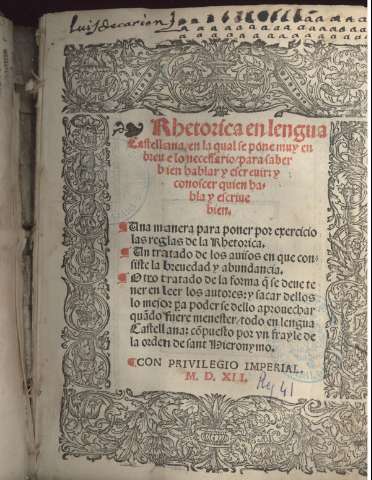 luis de carion
Rhetorica en lengua
Castellana, en la qual se pone muy en
breue lo necessario/para saber
bien hablar y escreuir: y
conoscer quien ha-
bla y escriue
bien.
¶ Una manera para poner por exercicio
las reglas de la Rhetorica.
¶ Un tratado de los auisos en que con-
siste la breuedad y abundancia.
¶ Otro tratado de la forma q̃ se deue te-
ner en leer los autores: y sacar dellos
lo mejor p̃a poder se dello aprouechar
quãdo fuere menester/todo en lengua
Castellana: cõpuesto por vn frayle de
la orden de sant Hieronymo.
¶CON PRIVILEGIO IMPERIAL.
M. D. XLI.
41